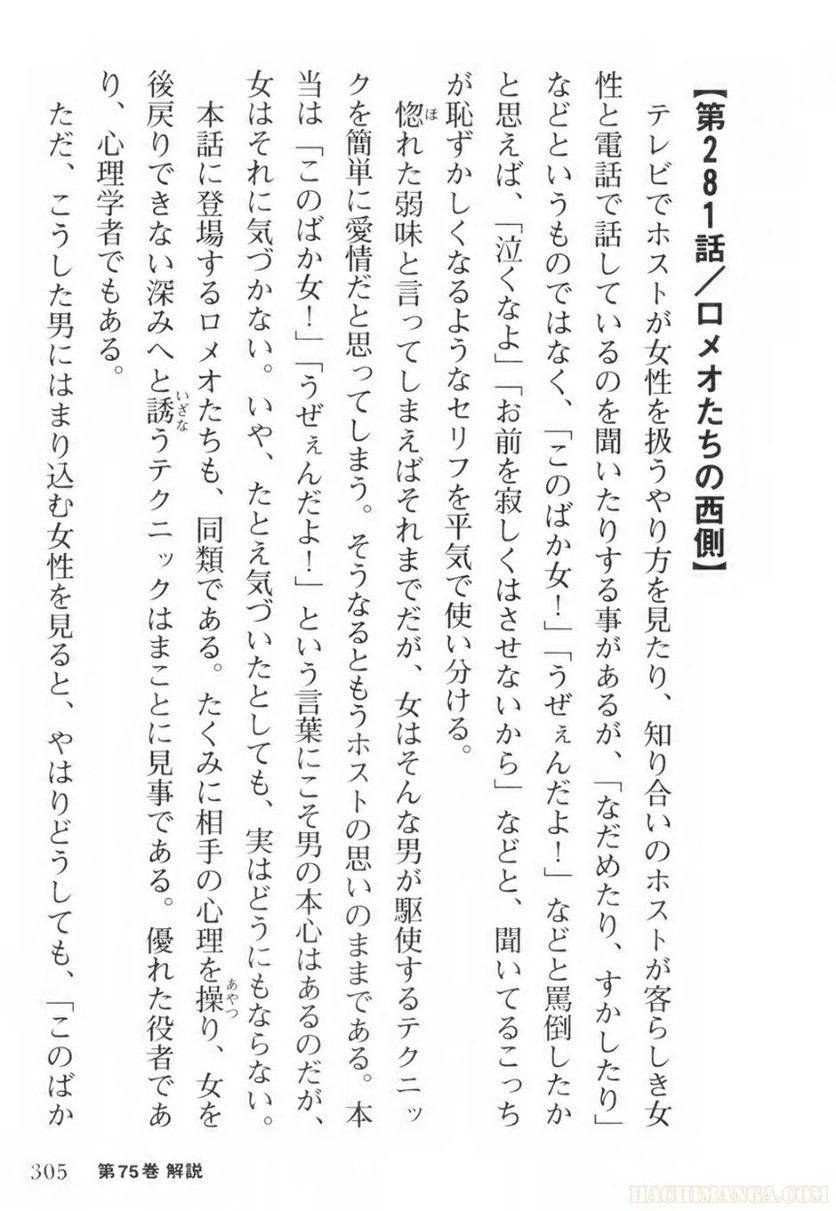 【第281話／ロメオたちの西側】
テレビでホストが女性を扱うやり方を見たり、知り合いのホストが客らしき女
性と電話で話しているのを聞いたりする事があるが、「なだめたり、すかしたり」
などというものではなく、「このばか女！」「うぜぇんだよ！」などと罵倒したか
と思えば、「泣くなよ」「お前を寂しくはさせないから」などと、聞いてるこっち
が恥ずかしくなるようなセリフを平気で使い分ける。
惚れた弱味と言ってしまえばそれまでだが、女はそんな男が駆使するテクニッ
クを簡単に愛情だと思ってしまう。そうなるともうホストの思いのままである。本
当は「このばか女！」「うぜぇんだよ！」という言葉にこそ男の本心はあるのだが、
女はそれに気づかない。いや、たとえ気づいたとしても、実はどうにもならない。
本話に登場するロメオたちも、同類である。たくみに相手の心理を操り、女を
後戻りできない深みへと誘うテクニックはまことに見事である。優れた役者であ
り、心理学者でもある。
ただ、こうした男にはまり込む女性を見ると、やはりどうしても、「このばか
305 第75巻 解説
HACHIMANGA.COM